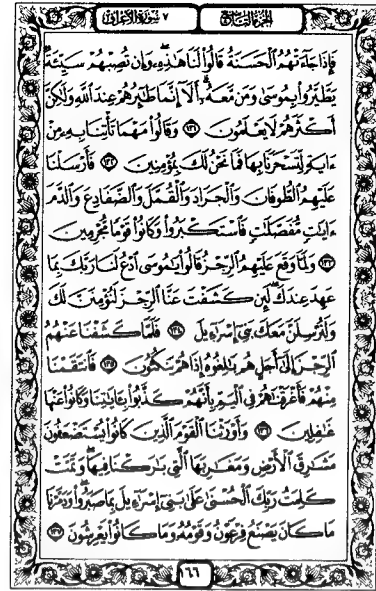 الجزء التاسع
٧ سورة الأعراف
فَإِذَا جَآءَتْهُمُ ٱلْحَسَنَةُ قَالُوا۟ لَنَا هَـٰذِهِۦ ۖ وَإِن تُصِبْهُمْ سَيِّئَةٌ
يَطَّيَّرُوا۟ بِمُوسَىٰ وَمَن مَّعَهُۥٓ ۗ أَلَآ إِنَّمَا طَـٰٓئِرُهُمْ عِندَ ٱللَّهِ وَلَـٰكِنَّ
أَكْثَرَهُمْ لَا يَعْلَمُونَ ١٣١ وَقَالُوا۟ مَهْمَا تَأْتِنَا بِهِۦ مِنْ
ءَايَةٍ لِّتَسْحَرَنَا بِهَا فَمَا نَحْنُ لَكَ بِمُؤْمِنِينَ ١٣٢ فَأَرْسَلْنَا
عَلَيْهِمُ ٱلطُّوفَانَ وَٱلْجَرَادَ وَٱلْقُمَّلَ وَٱلضَّفَادِعَ وَٱلدَّمَ
ءَايَـٰتٍ مُّفَصَّلَـٰتٍ فَٱسْتَكْبَرُوا۟ وَكَانُوا۟ قَوْمًا مُّجْرِمِينَ
١٣٣ وَلَمَّا وَقَعَ عَلَيْهِمُ ٱلرِّجْزُ قَالُوا۟ يَـٰمُوسَى ٱدْعُ لَنَا رَبَّكَ بِمَا
عَهِدَ عِندَكَ ۖ لَئِن كَشَفْتَ عَنَّا ٱلرِّجْزَ لَنُؤْمِنَنَّ لَكَ
وَلَنُرْسِلَنَّ مَعَكَ بَنِىٓ إِسْرَٰٓءِيلَ ١٣٤ فَلَمَّا كَشَفْنَا عَنْهُمُ
ٱلرِّجْزَ إِلَىٰٓ أَجَلٍ هُم بَـٰلِغُوهُ إِذَا هُمْ يَنكُثُونَ ١٣٥ فَٱنتَقَمْنَا
مِنْهُمْ فَأَغْرَقْنَـٰهُمْ فِى ٱلْيَمِّ بِأَنَّهُمْ كَذَّبُوا۟ بِـَٔايَـٰتِنَا وَكَانُوا۟ عَنْهَا
غَـٰفِلِينَ ١٣٦ وَأَوْرَثْنَا ٱلْقَوْمَ ٱلَّذِينَ كَانُوا۟ يُسْتَضْعَفُونَ
مَشَـٰرِقَ ٱلْأَرْضِ وَمَغَـٰرِبَهَا ٱلَّتِى بَـٰرَكْنَا فِيهَا ۖ وَتَمَّتْ
كَلِمَتُ رَبِّكَ ٱلْحُسْنَىٰ عَلَىٰ بَنِىٓ إِسْرَٰٓءِيلَ بِمَا صَبَرُوا۟ ۖ وَدَمَّرْنَا
مَا كَانَ يَصْنَعُ فِرْعَوْنُ وَقَوْمُهُۥ وَمَا كَانُوا۟ يَعْرِشُونَ ١٣٧
١٦٦